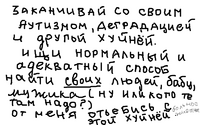 ЗАКАНЧИВАЙ СО СВОИМ
АУТИЗМОМ, ДЕГРАДАЦИЕЙ
И ДРУГОЙ ХУЙНЁЙ.
ИЩИ НОРМАЛЬНЫЙ И
АДЕКВАТНЫЙ СПОСОБ
НАЙТИ СВОИХ ЛЮДЕЙ, БАБУ,
МУЖИКА (НУ ИЛИ КОГО ТЕ
ТАМ НАДО?)
ОТ МЕНЯ ОТЪЕБИСЬ С
ЭТОЙ ХУЙНЁЙ